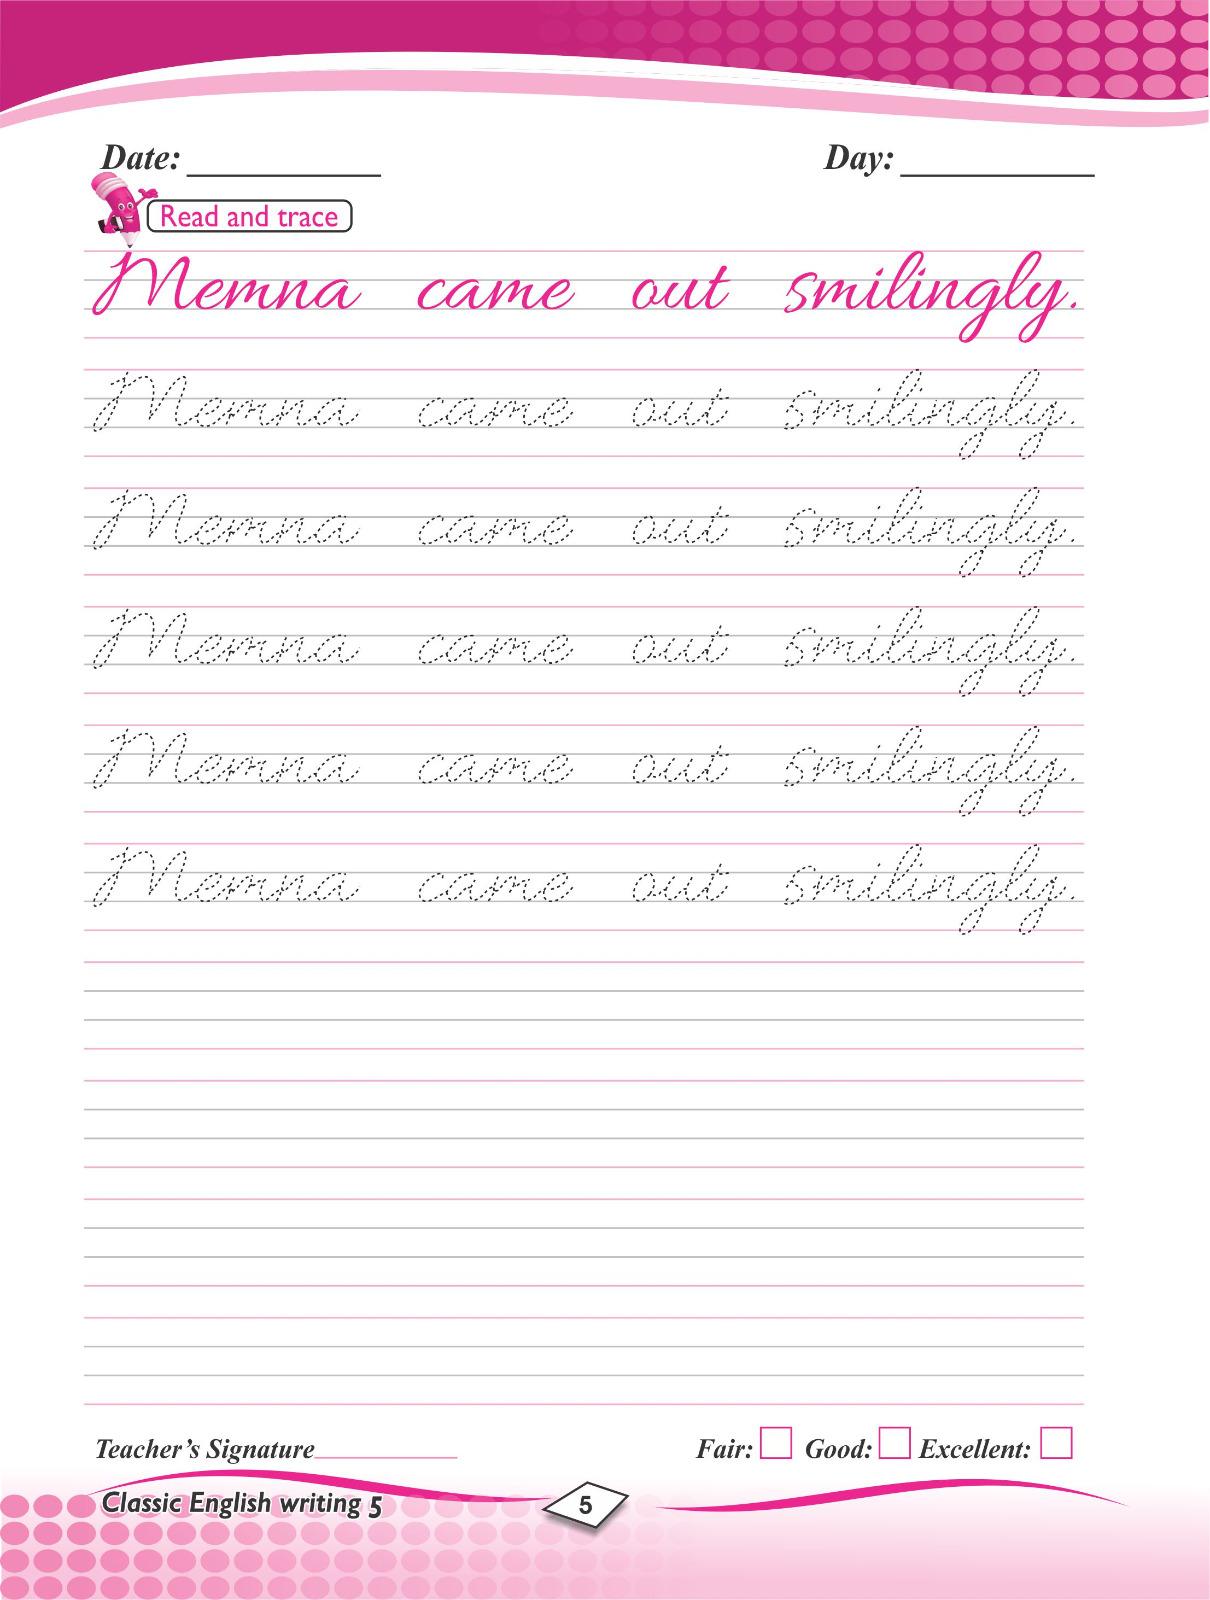 Date: ____________ Day: ____________
Read and trace
Memna came out smilingly.
Memna came out smilingly.
Memna came out smilingly.
Memna came out smilingly.
Memna came out smilingly.
Memna came out smilingly.
Teacher's Signature__________ Fair: Good: Excellent:
Classic English writing 5 5